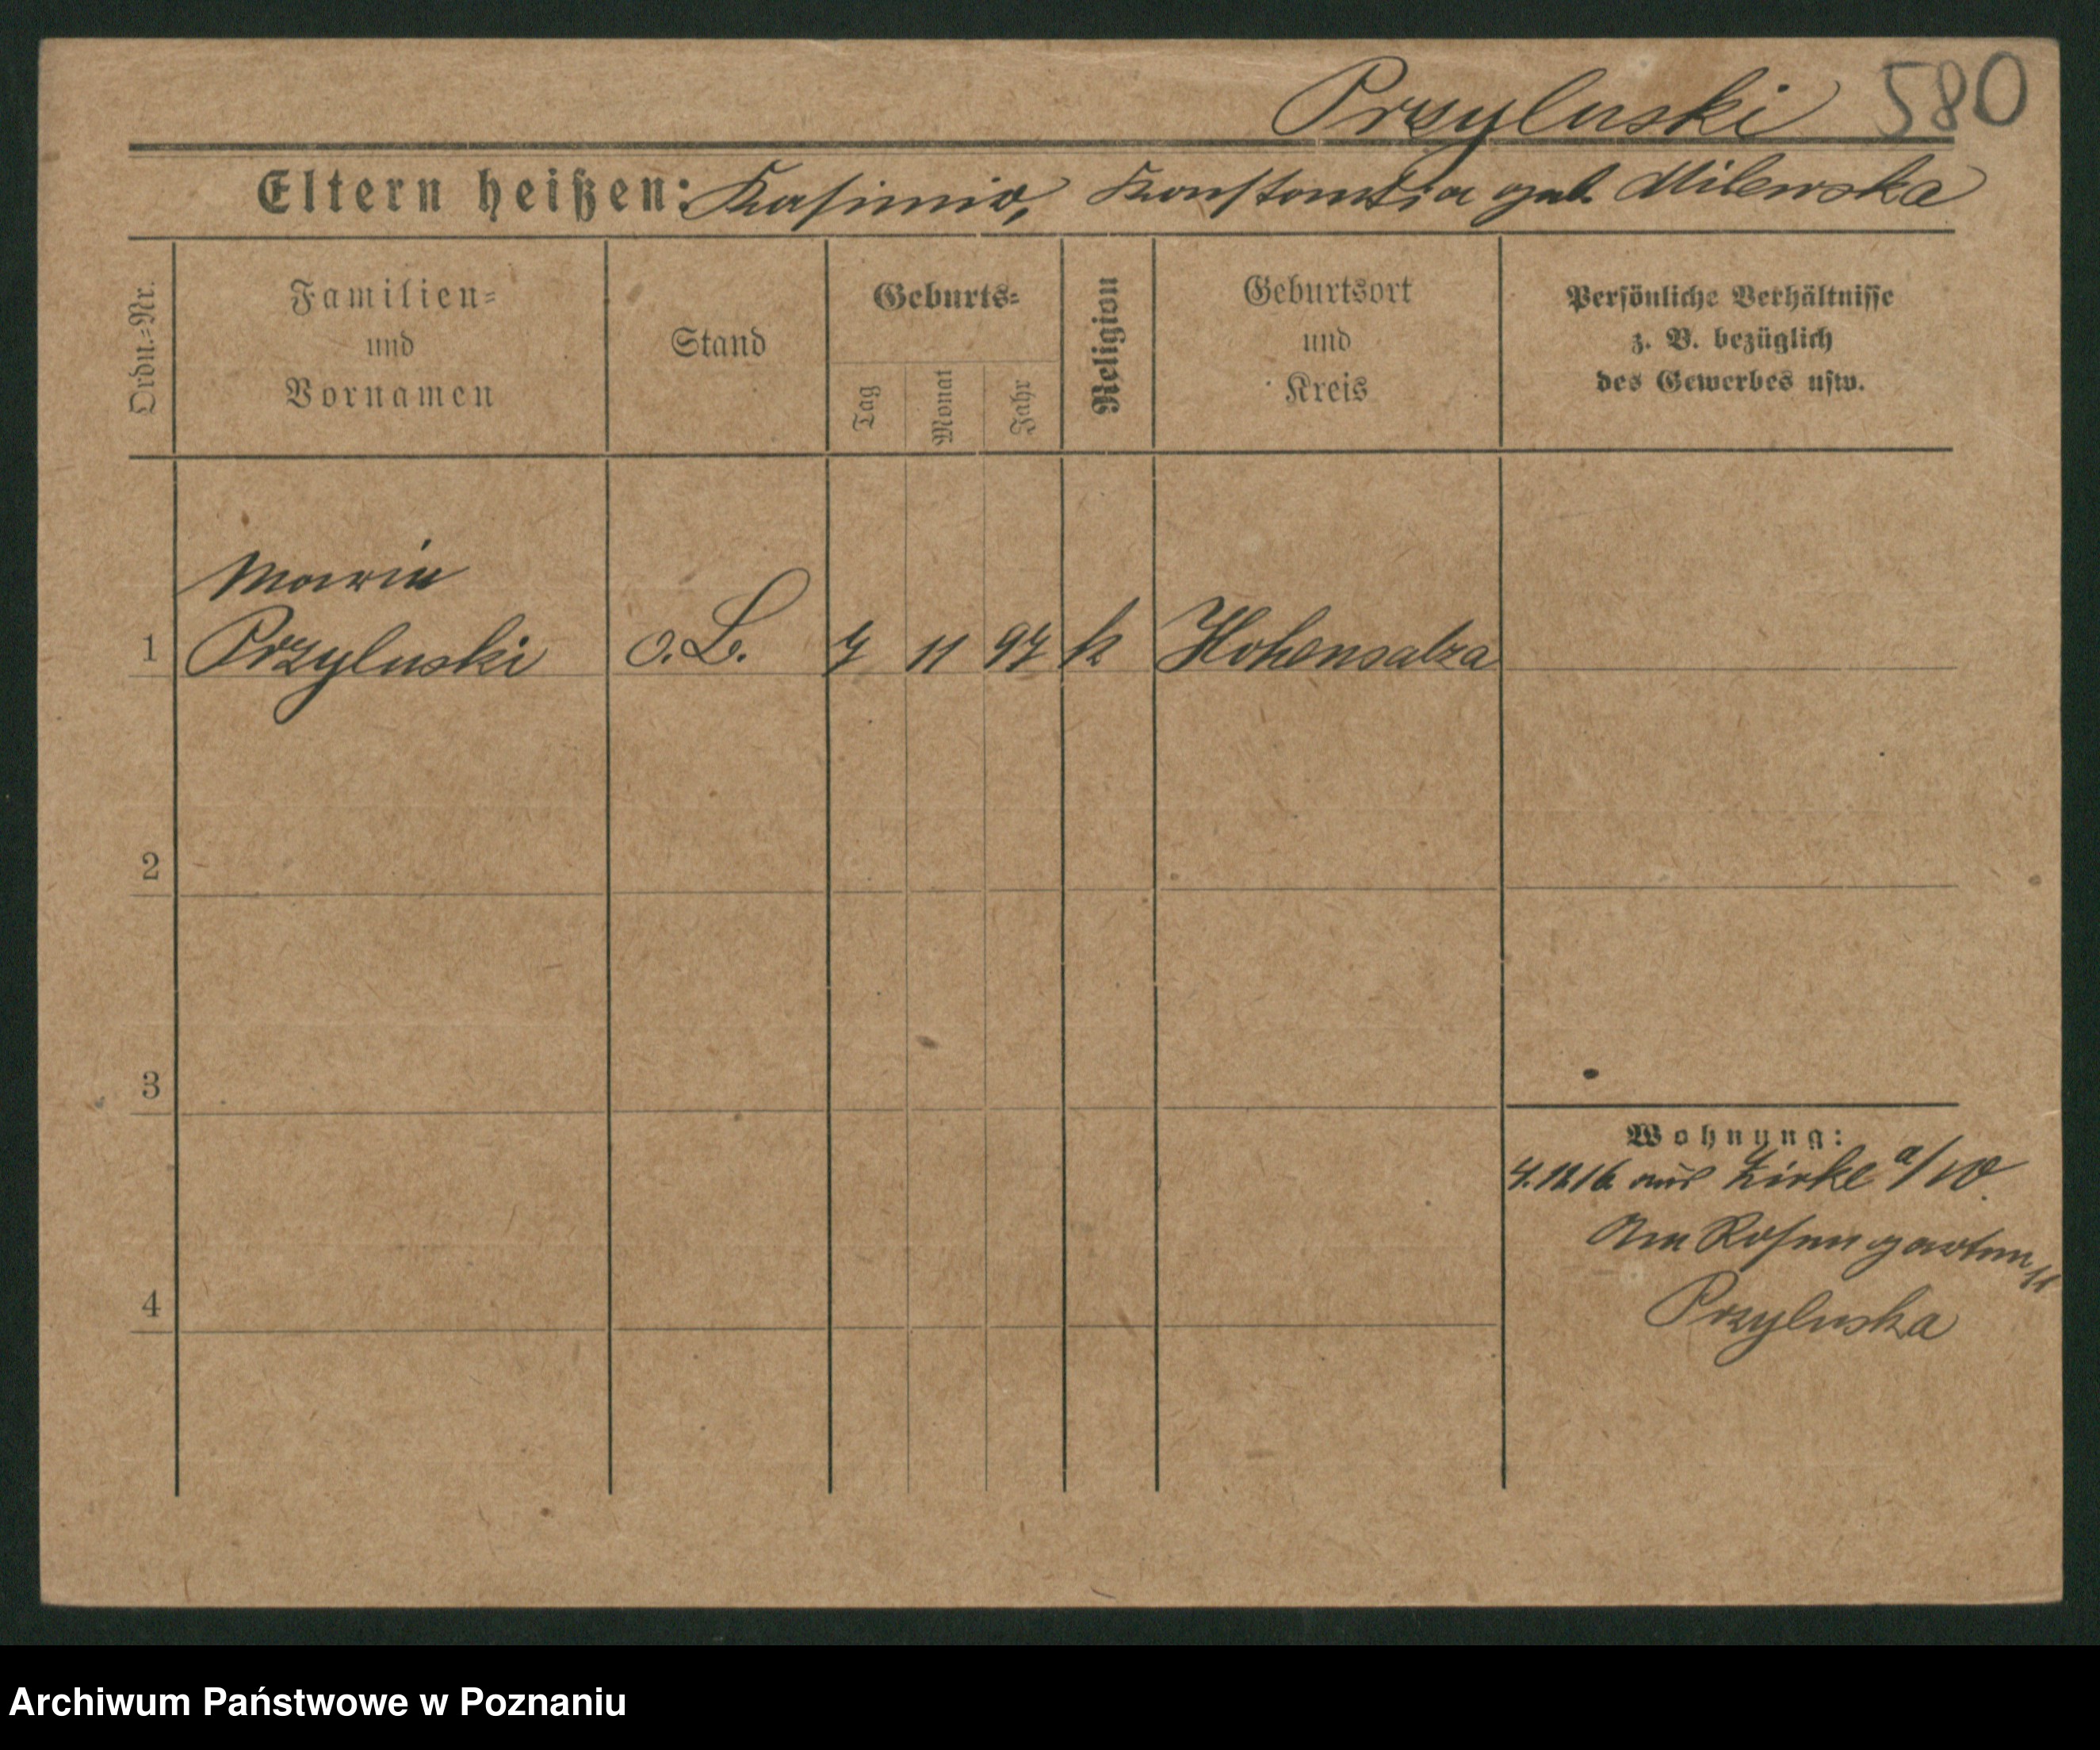 Przyluski 580
Eltern heißen: Kasimir, Konstantia geb. Milewska
Ordn.-Nr.
Familien-
und
Vornamen
Stand
Geburts-
Tag
Monat
Jahr
Religion
Geburtsort
und
Kreis
Persönliche Verhältnisse
z. B. bezüglich
des Gewerbes usw.
Maria
1 Przyluski o. B. 7 11 97 k Hohensalza
2
3
4
Wohnung:
4.12.16 aus Zirke a/W.
Am Rosengarten 11
Przyluska
Archiwum Państwowe w Poznaniu